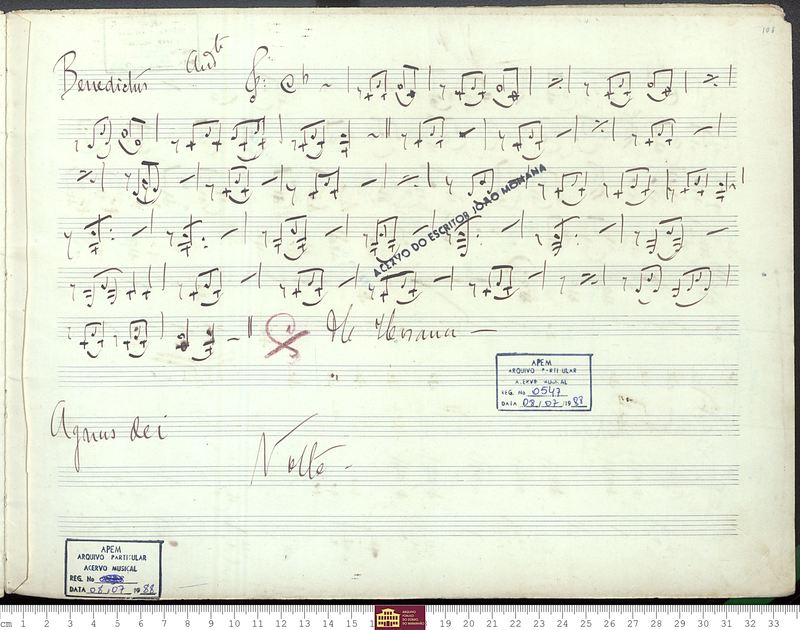 108
Benedictus Andte
ACERVO DO ESCRITOR JOÃO MOHANA
Hosanna
APEM
ARQUIVO PARTICULAR
ACERVO MUSICAL
REG. No 0547
DATA 08/07/1988
Agnus dei
Volte
APEM
ARQUIVO PARTICULAR
ACERVO MUSICAL
REG. No
DATA 08/07 1988
cm 1 2 3 4 5 6 7 8 9 10 11 12 13 14 15 19 20 21 22 23 24 25 26 27 28 29 30 31 32 33
ARQUIVO
PÚBLICO
DO ESTADO
DO MARANHÃO